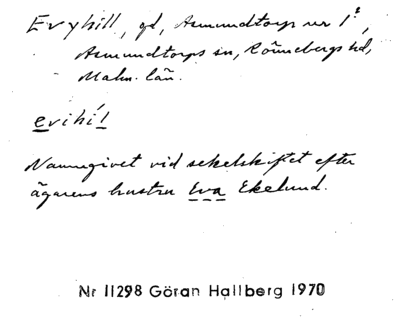 Evyhill, gd, Asmundtorp nr 1²,
Asmundtorps sn, Rönnebergs hd,
Malm. län.
evihíl
Namngivet vid sekelskiftet efter
ägarens hustru Eva Ekelund.
Nr 11298 Göran Hallberg 1970